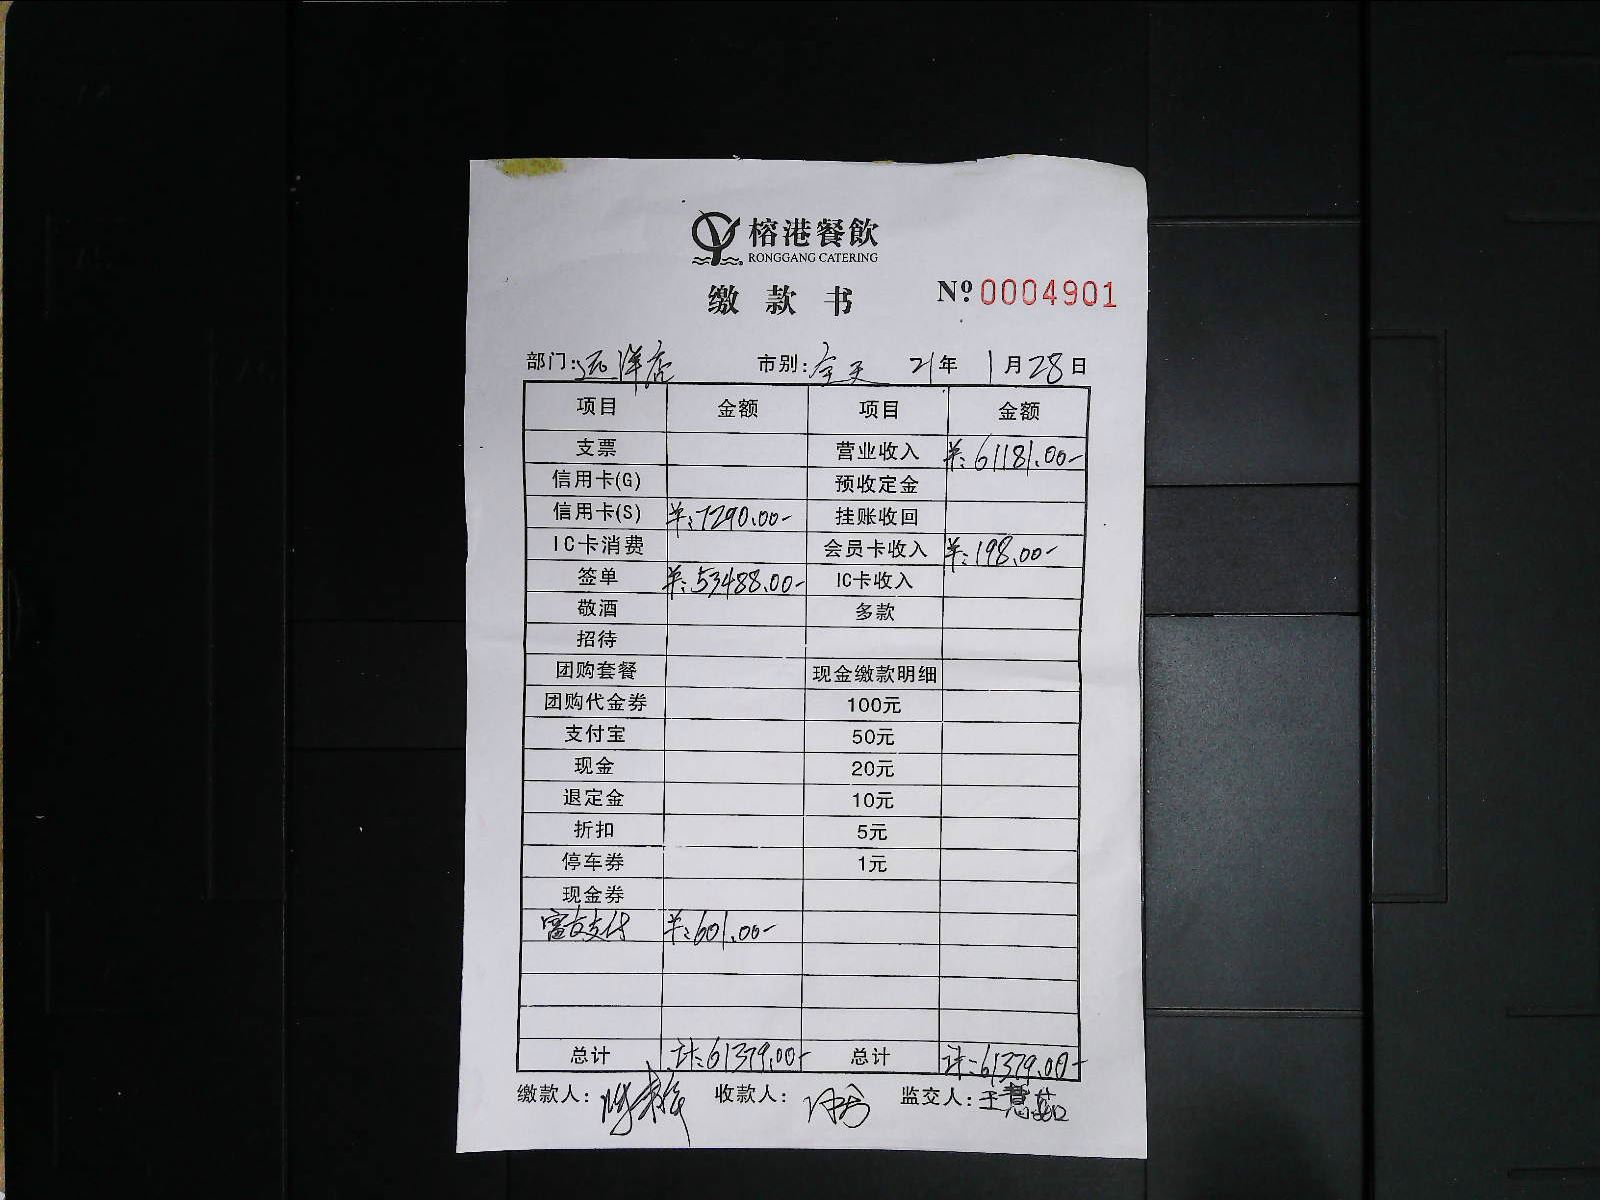 榕港餐飲
RONGGANG CATERING
缴款书 Nº 0004901
部门:远洋店 市别:全天 21年 1月28日
项目 金额 项目 金额
支票 营业收入 ¥:61181.00-
信用卡(G) 预收定金
信用卡(S) ¥:7290.00- 挂账收回
IC卡消费 会员卡收入 ¥:198.00-
签单 ¥:53488.00- IC卡收入
敬酒 多款
招待
团购套餐 现金缴款明细
团购代金券 100元
支付宝 50元
现金 20元
退定金 10元
折扣 5元
停车券 1元
现金券
富友支付 ¥:601.00-
总计 计:61379.00- 总计 计:61379.00-
缴款人: 收款人: 监交人:王慧茹